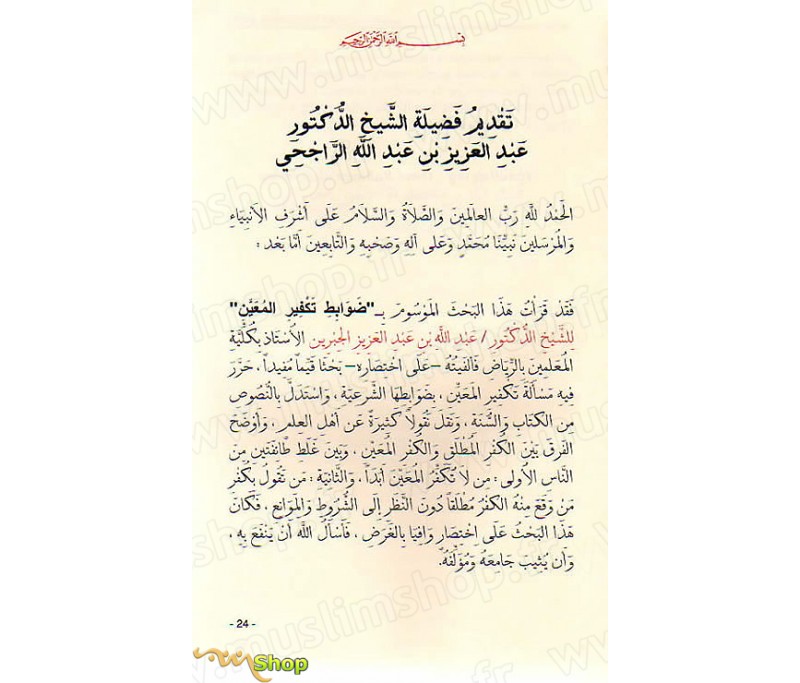 بسم الله الرحمن الرحيم
تَقْدِيمُ فَضِيلَةِ الشَّيخِ الدُّكْتُور
عَبْدِ العَزِيزِ بْنِ عَبْدِ اللَّهِ الرَّاجْحَي
الحَمْدُ للَّهِ رَبِّ العالَمِينَ وَالصَّلاَةُ وَالسَّلاَمُ عَلَى أَشْرَفِ الأَنْبِيَاءِ
وَالمُرْسَلينَ نَبِيِّنَا مُحَمَّدٍ وَعَلَى آلِهِ وَصَحْبِهِ وَالتَّابِعينَ أَمَّا بَعْد :
فَقَدْ قَرَأْتُ هَذَا البَحْثَ المَوْسُومَ بِـ "ضَوَابِطِ تَكْفِيرِ المُعَيَّنِ"
للشَّيْخِ الدُّكْتُورِ / عَبْدِ اللَّهِ بنِ عَبْدِ العَزِيزِ الجِبْرِينِ الأُسْتَاذِ بِكُلِّيَّةِ
المُعَلِّمِينَ بِالرِّيَاضِ فَأَلْفَيْتُهُ –عَلَى اخْتِصَارِهِ– بَحْثًا قَيِّمًا مُفِيداً، حَرَّرَ
فِيهِ مَسْأَلَةَ تَكْفِيرِ المُعَيَّنِ ، بِضَوَابِطِهَا الشَّرْعِيَّةِ ، وَاسْتَدَلَّ بِالنُّصُوصِ
مِنَ الكِتَابِ وَالسُّنَّةِ ، وَنَقَلَ نُقُولاً كَثِيرَةً عَن أَهْلِ العِلْمِ ، وَأَوْضَحَ
الفَرقَ بَيْنَ الكُفْرِ المُطْلَقِ وَالكُفْرِ المُعَيَّنِ ، وَبَيَّنَ غَلَطَ طَائِفَتَيْنِ مِنَ
النَّاسِ الأُولَى : مَن لاَ تُكَفِّرُ المُعَيَّنَ أَبَداً ، وَالثَّانِيَةَ : مَن تَقُولُ بِكُفْرِ
مَنْ وَقَعَ مِنْهُ الكُفْرُ مُطْلَقاً دُونَ النَّظَرِ إِلَى الشُّرُوطِ وَالمَوَانِعِ ، فَكَانَ
هَذَا البَحْثُ عَلَى اخْتِصَارِ وَافِيَا بِالغَرَضِ ، فَأَسْأَلُ اللَّهَ أَنْ يَنْفَعَ بِهِ ،
وَأَن يُثِيبَ جَامِعَهُ وَمُؤَلِّفَهُ.
- 24 -
Shop
www.muslimshop.fr